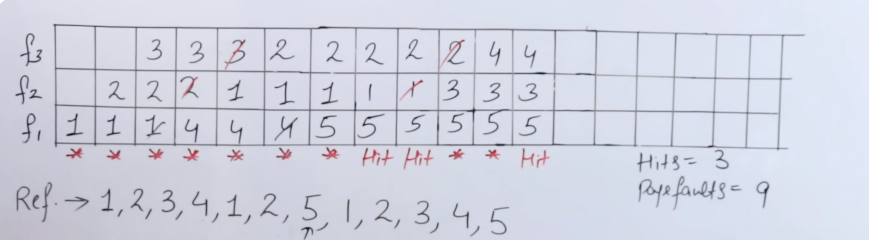 f3 3 3 3 2 2 2 2 2 4 4
f2 2 2 2 1 1 1 1 1 3 3 3
f1 1 1 1 4 4 4 5 5 5 5 5 5
* * * * * * * Hit Hit * * Hit
Hits = 3
Pagefaults = 9
Ref. → 1, 2, 3, 4, 1, 2, 5, 1, 2, 3, 4, 5